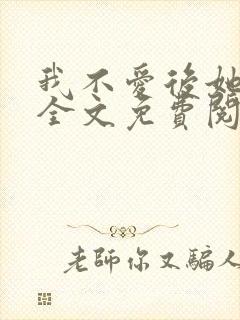 我不愛後她
全文免費閱
老師你又騙人